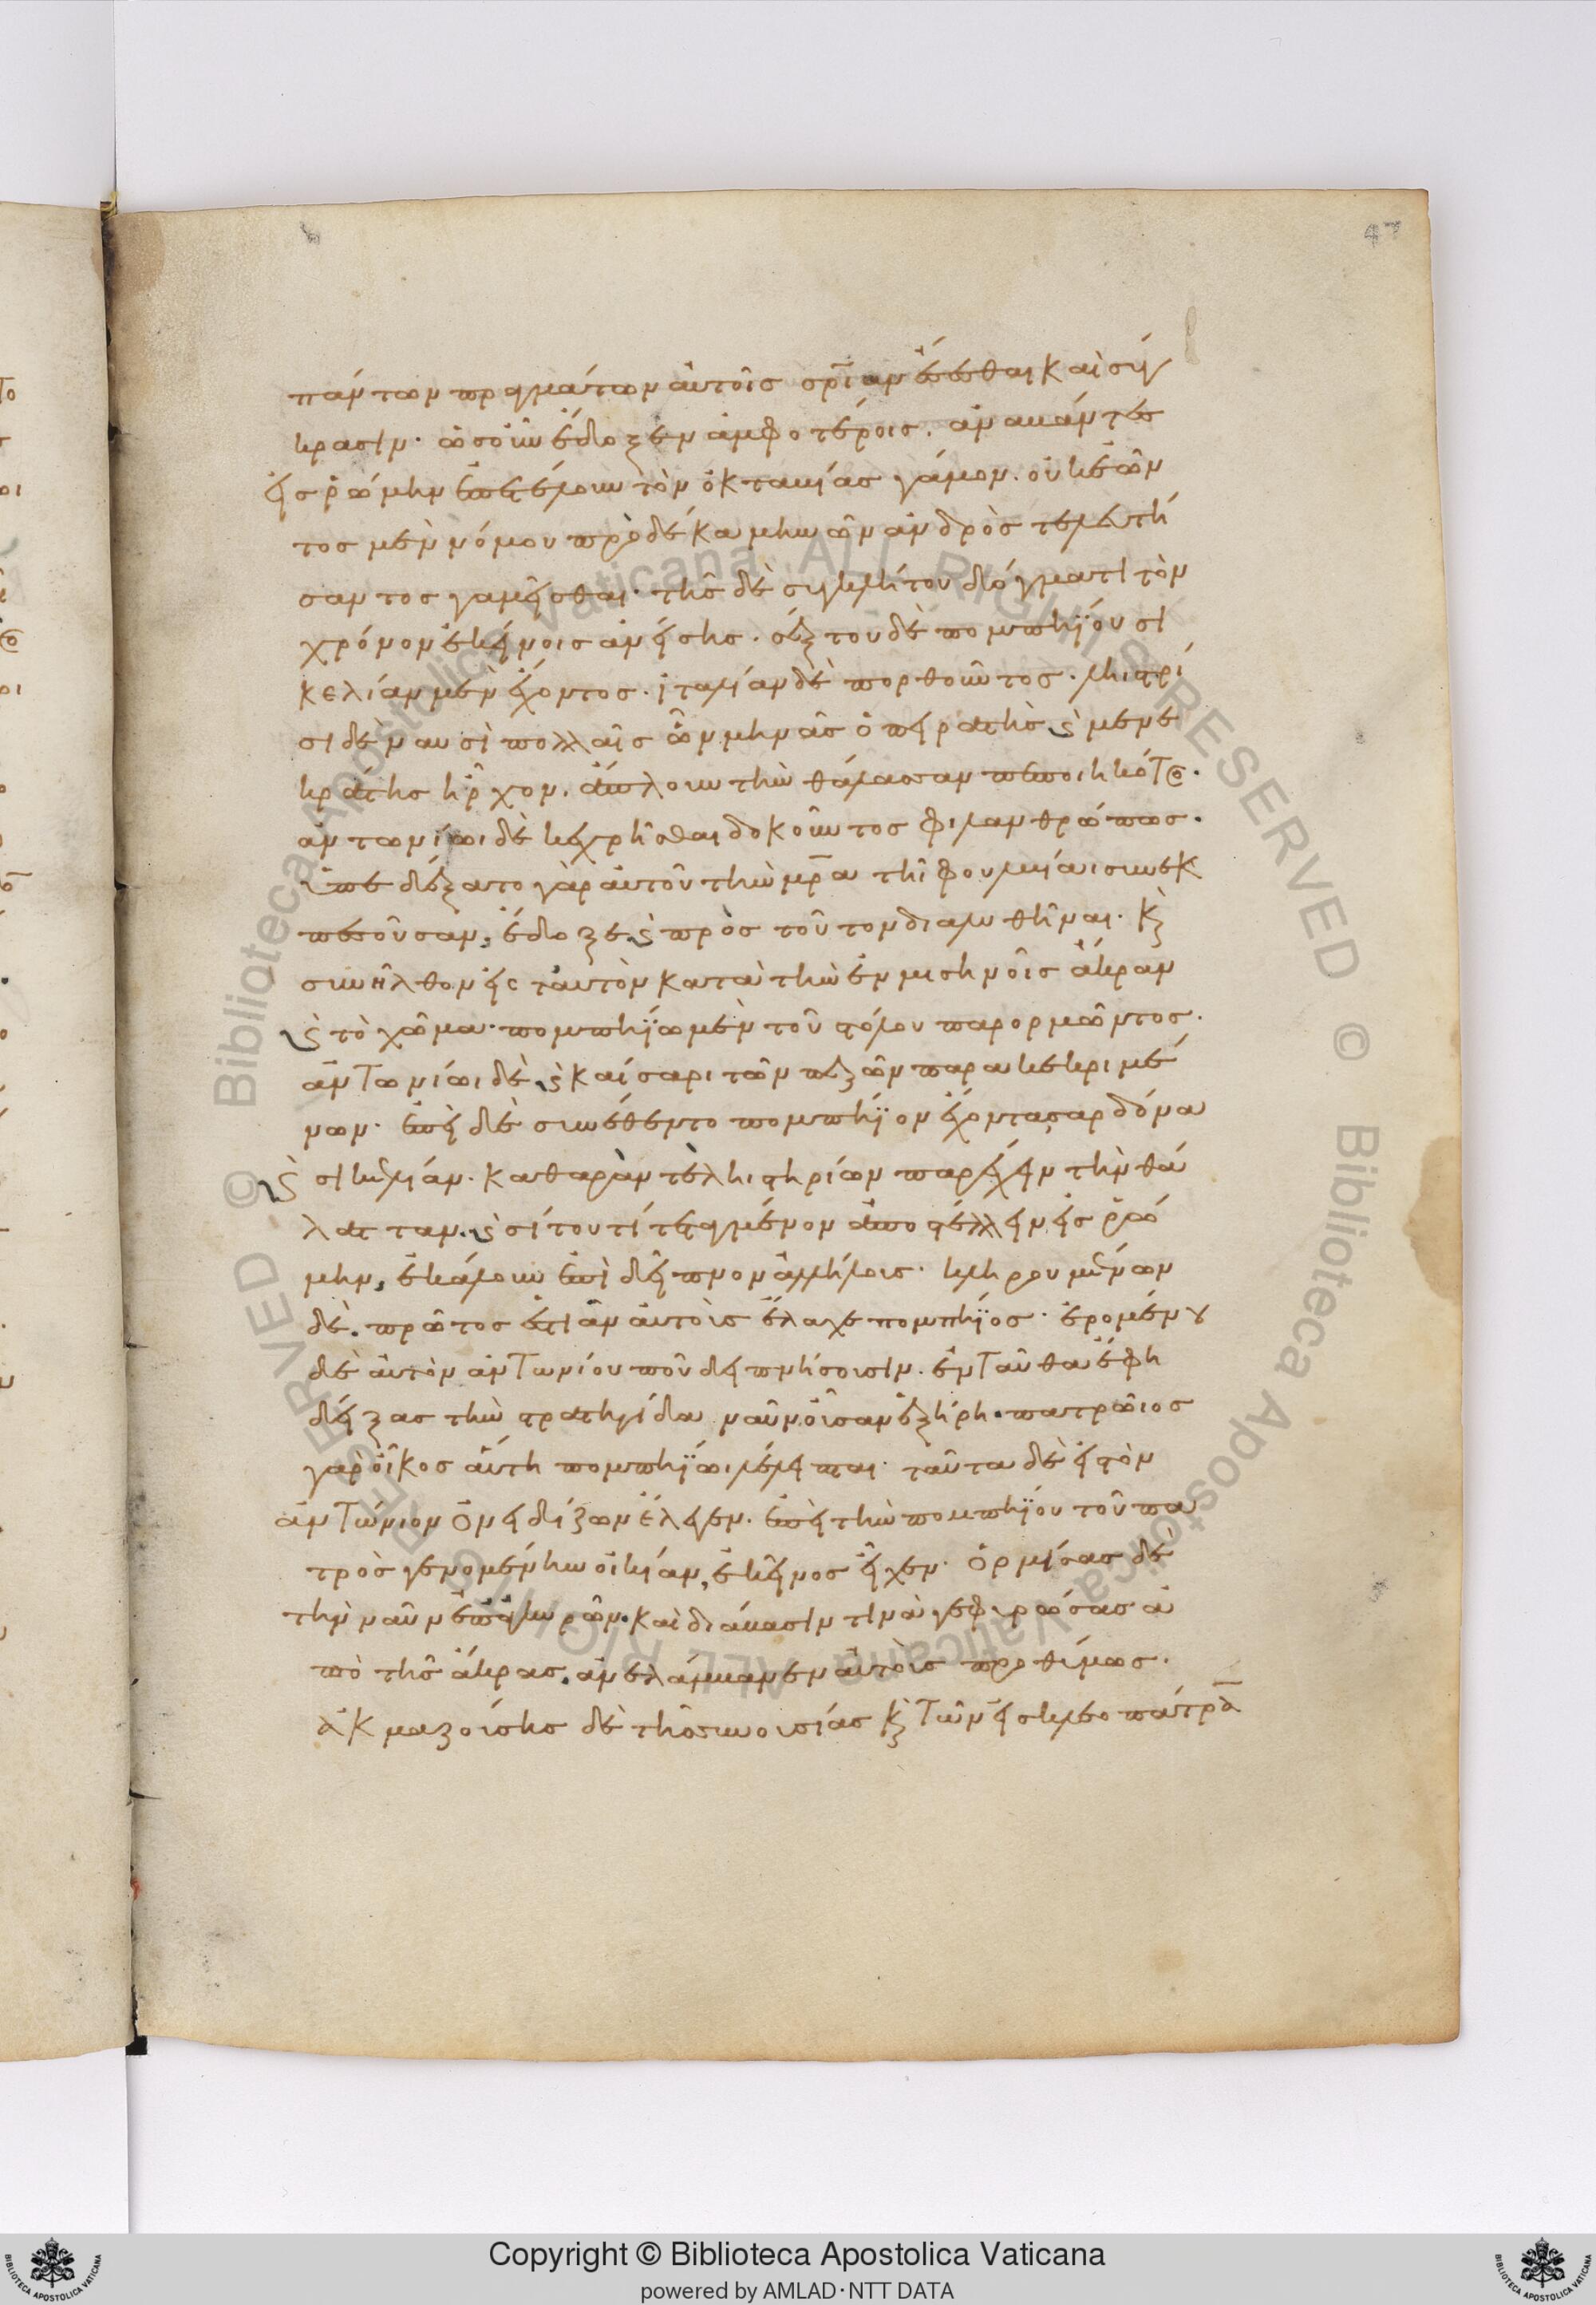 47
πάντων πραγμάτων αὐτοῖς σρ̅ίαν ἔσεσθαι καὶ σύγ
κρασιν· ὡς οὖν ἔδοξεν ἀμφοτέροις. ἀναβάντες
εἰς ῥώμην ἐπετέλουν τὸν ὀκταβίας γάμον. οὐκ ἐῶν
τος μὲν νόμου πρὸ δέκα μηνῶν ἀνδρὸς τελευτή
σαντος γαμεῖσθαι· τῆς δὲ συγκλήτου δόγματι τὸν
χρόνον ἐκείνοις ἀνείσης. σέξτου δὲ πομπηΐου σι
κελίαν μὲν ἔχοντος. ἰταλίαν δὲ πορθοῦντος. λῃστρί
σι δὲ ναυσὶ πολλαῖς ὧν μηνᾶς ὁ πειρατὴς ϗ μενε
κράτης ἦρχον. ἄπλουν τὴν θάλασσαν πεποιηκότος.
ἀντωνίωι δὲ κεχρῆσθαι δοκοῦντος φιλανθρώπως.
ὑπεδέξατο γὰρ αὐτοῦ τὴν μρ̅α τῆι φουλβίαι συνεκ
πεσοῦσαν, ἔδοξε ϗ πρὸς τοῦτον διαλυθῆναι· ϗ
συνῆλθον εἰς ταυτὸν κατὰ τὴν ἐν μισηνοῖς ἄκραν
ϗ τὸ χῶμα· πομπηΐω μὲν τοῦ στόλου παρορμῶντος.
ἀντωνίωι δὲ ϗ καίσαρι τῶν πεζῶν παρακεκριμέ
νων· ἐπεὶ δὲ συνέθεντο πομπήϊον ἔχοντα σαρδόνα
ϗ σικελίαν. καθαράν τε λῃστηρίων παρέχειν τὴν θά
λατταν. ϗ σίτου τί τεταγμένον ἀποστέλλειν εἰς ῥώ
μην, ἐκάλουν ἐπὶ δεῖπνον ἀλλήλους· κληρουμένων
δὲ. πρῶτος ἑστιᾶν αὐτοὺς ἔλαχε πομπήϊος· ἐρομένου
δὲ αὐτὸν ἀντωνίου ποῦ δειπνήσουσιν. ἐνταῦθα ἔφη
δείξας τὴν στρατηγίδα ναῦν οὖσαν ἑξήρη. πατρῶιος
γὰρ οἶκος αὕτη πομπηΐωι λέλειπται· ταῦτα δὲ εἰς τὸν
ἀντώνιον ὀνειδίζων ἔλεγεν. ἐπεὶ τὴν πομπηΐου τοῦ πα
τρὸς γενομένην οἰκίαν, ἐκεῖνος εἶχεν· ὁρμίσας δὲ
τὴν ναῦν ἐπ' ἀγκυρῶν. καὶ διάβασίν τινα γεφυρώσας ἀ
πὸ τῆς ἄκρας. ἀνελάμβανεν αὐτοὺς προθύμως.
ἀκμαζούσης δὲ τῆς συνουσίας ϗ τῶν εἰς κλεοπάτραν